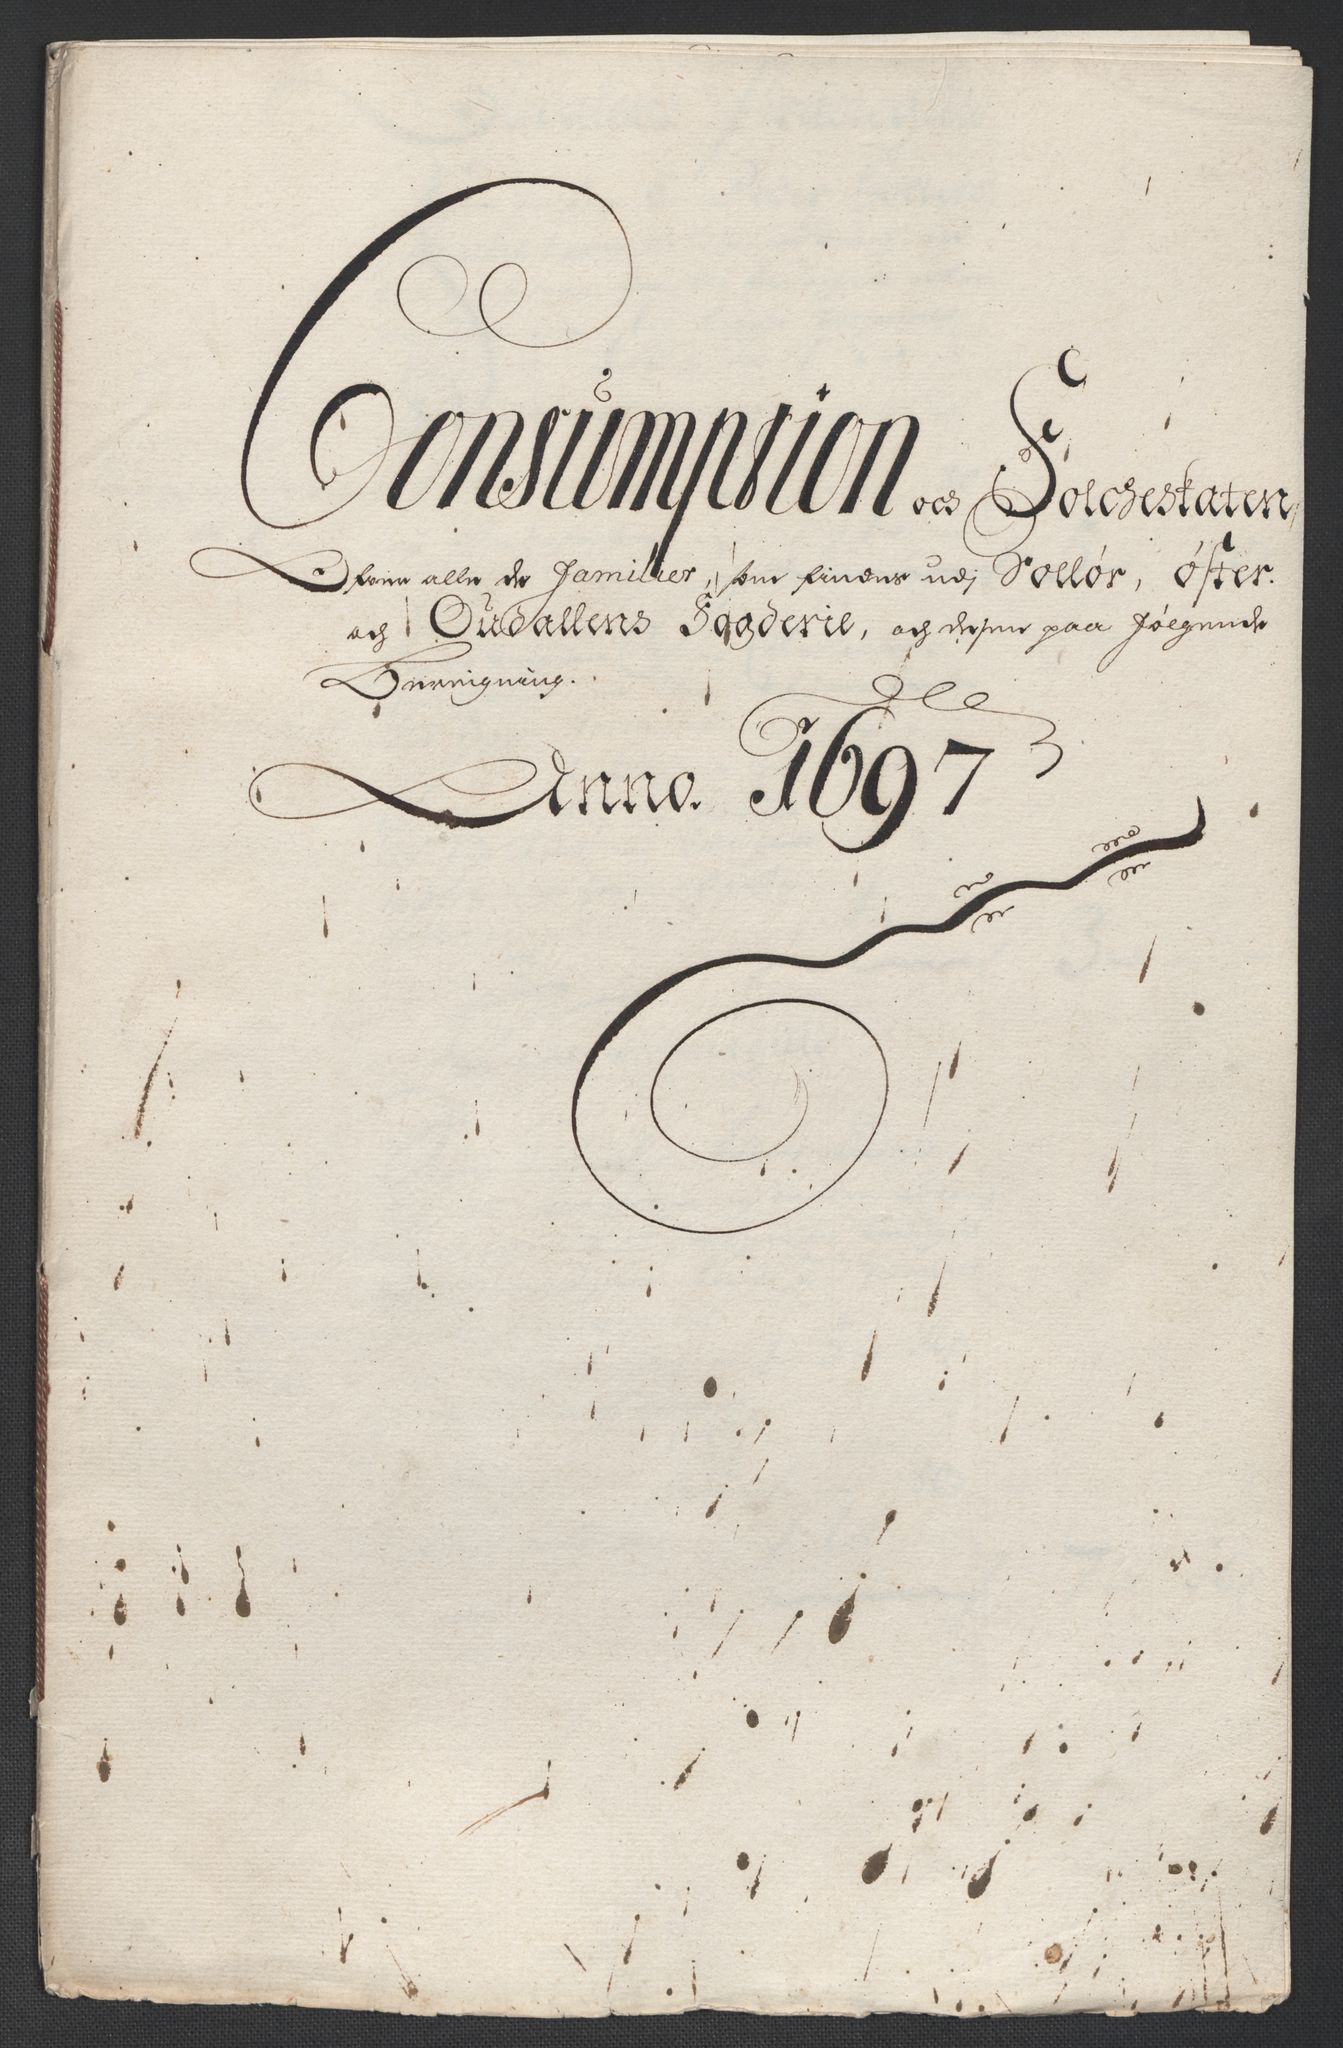 Consumption och Folcheskaten,
Afeur alle de Familier, som findens udj Soelør, Øster-
och Oudallens Fogderie, och desen paa følgende
Bereigning.
Anno. 1697